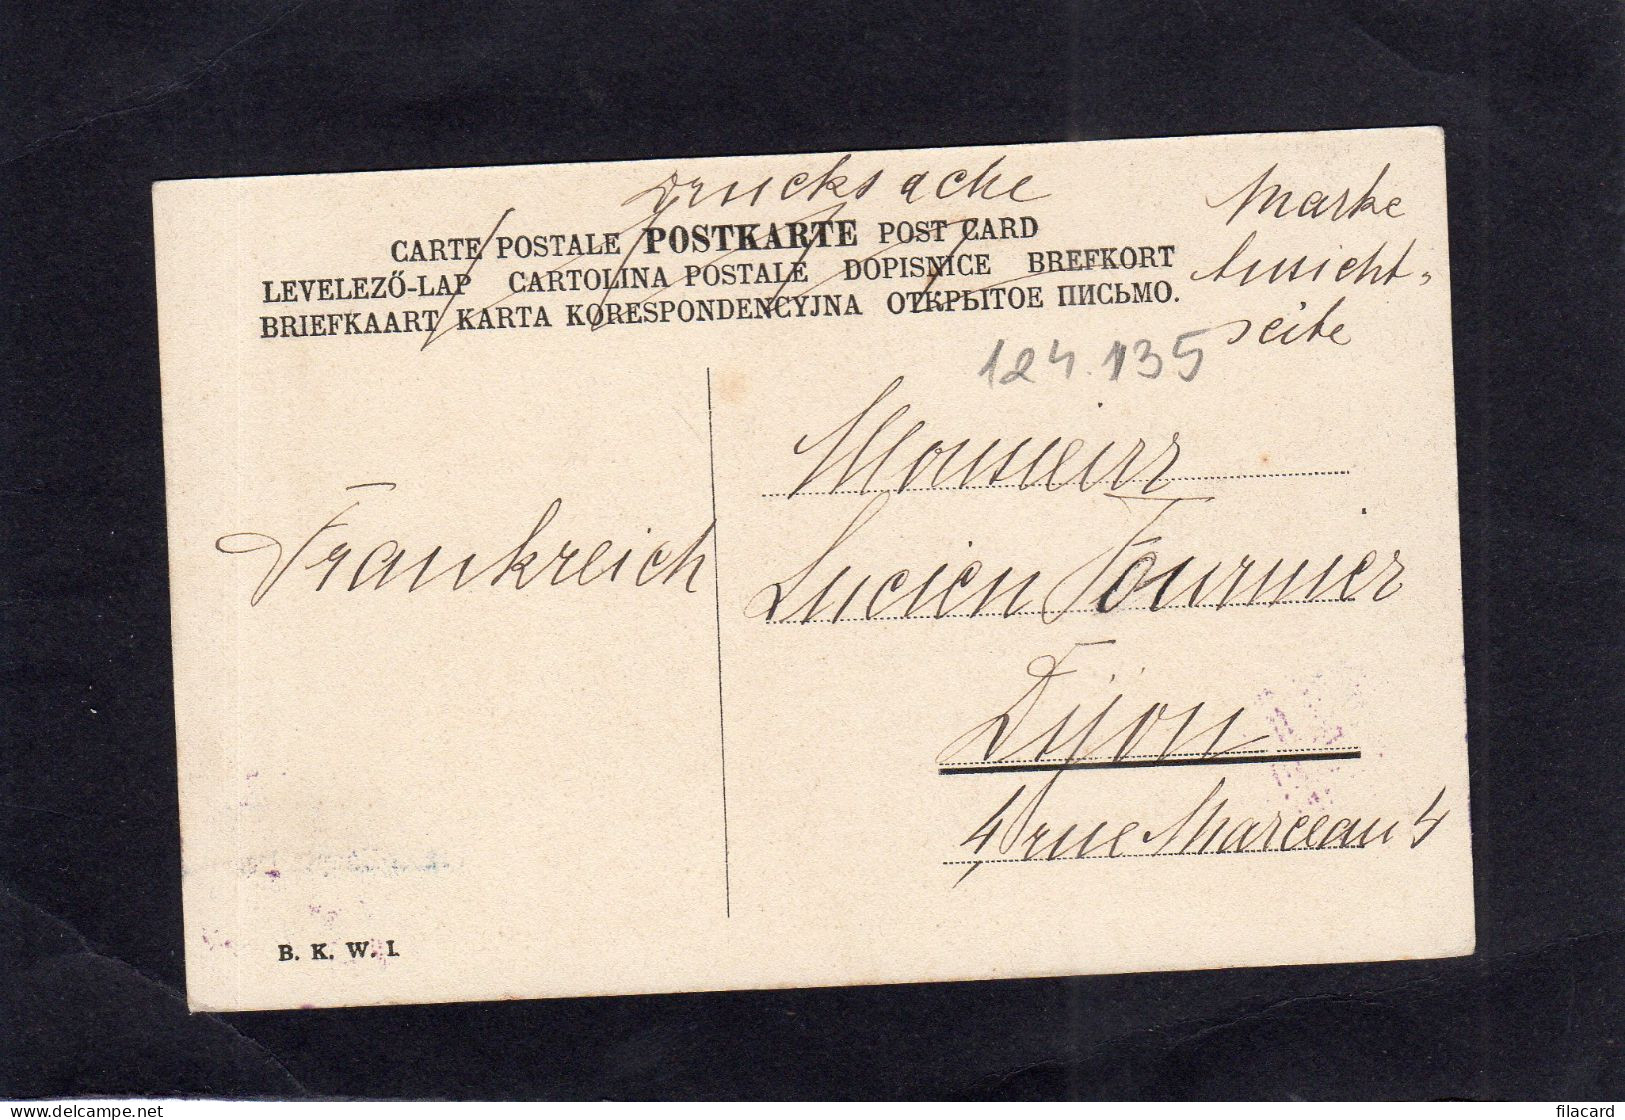 Drucksache
Marke
Ansicht-
seite
CARTE POSTALE POSTKARTE POST CARD
LEVELEZŐ-LAP CARTOLINA POSTALE DOPISNICE BREFKORT
BRIEFKAART KARTA KORESPONDENCYJNA ОТКРЫТОЕ ПИСЬМО.
124.135
Monsieur
Frankreich
Lucien Fournier
Dijon
4, rue Marceau 4
B. K. W. I.
filacard
www.delcampe.net